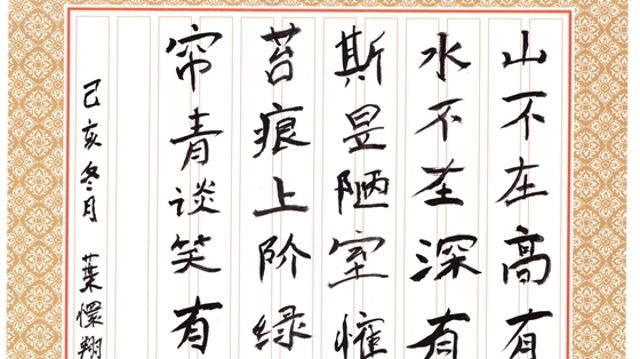 山不在高有
水不在深有
斯昰陋室惟
苔痕上阶绿
帘青谈笑有
己亥冬月 葉懷翔